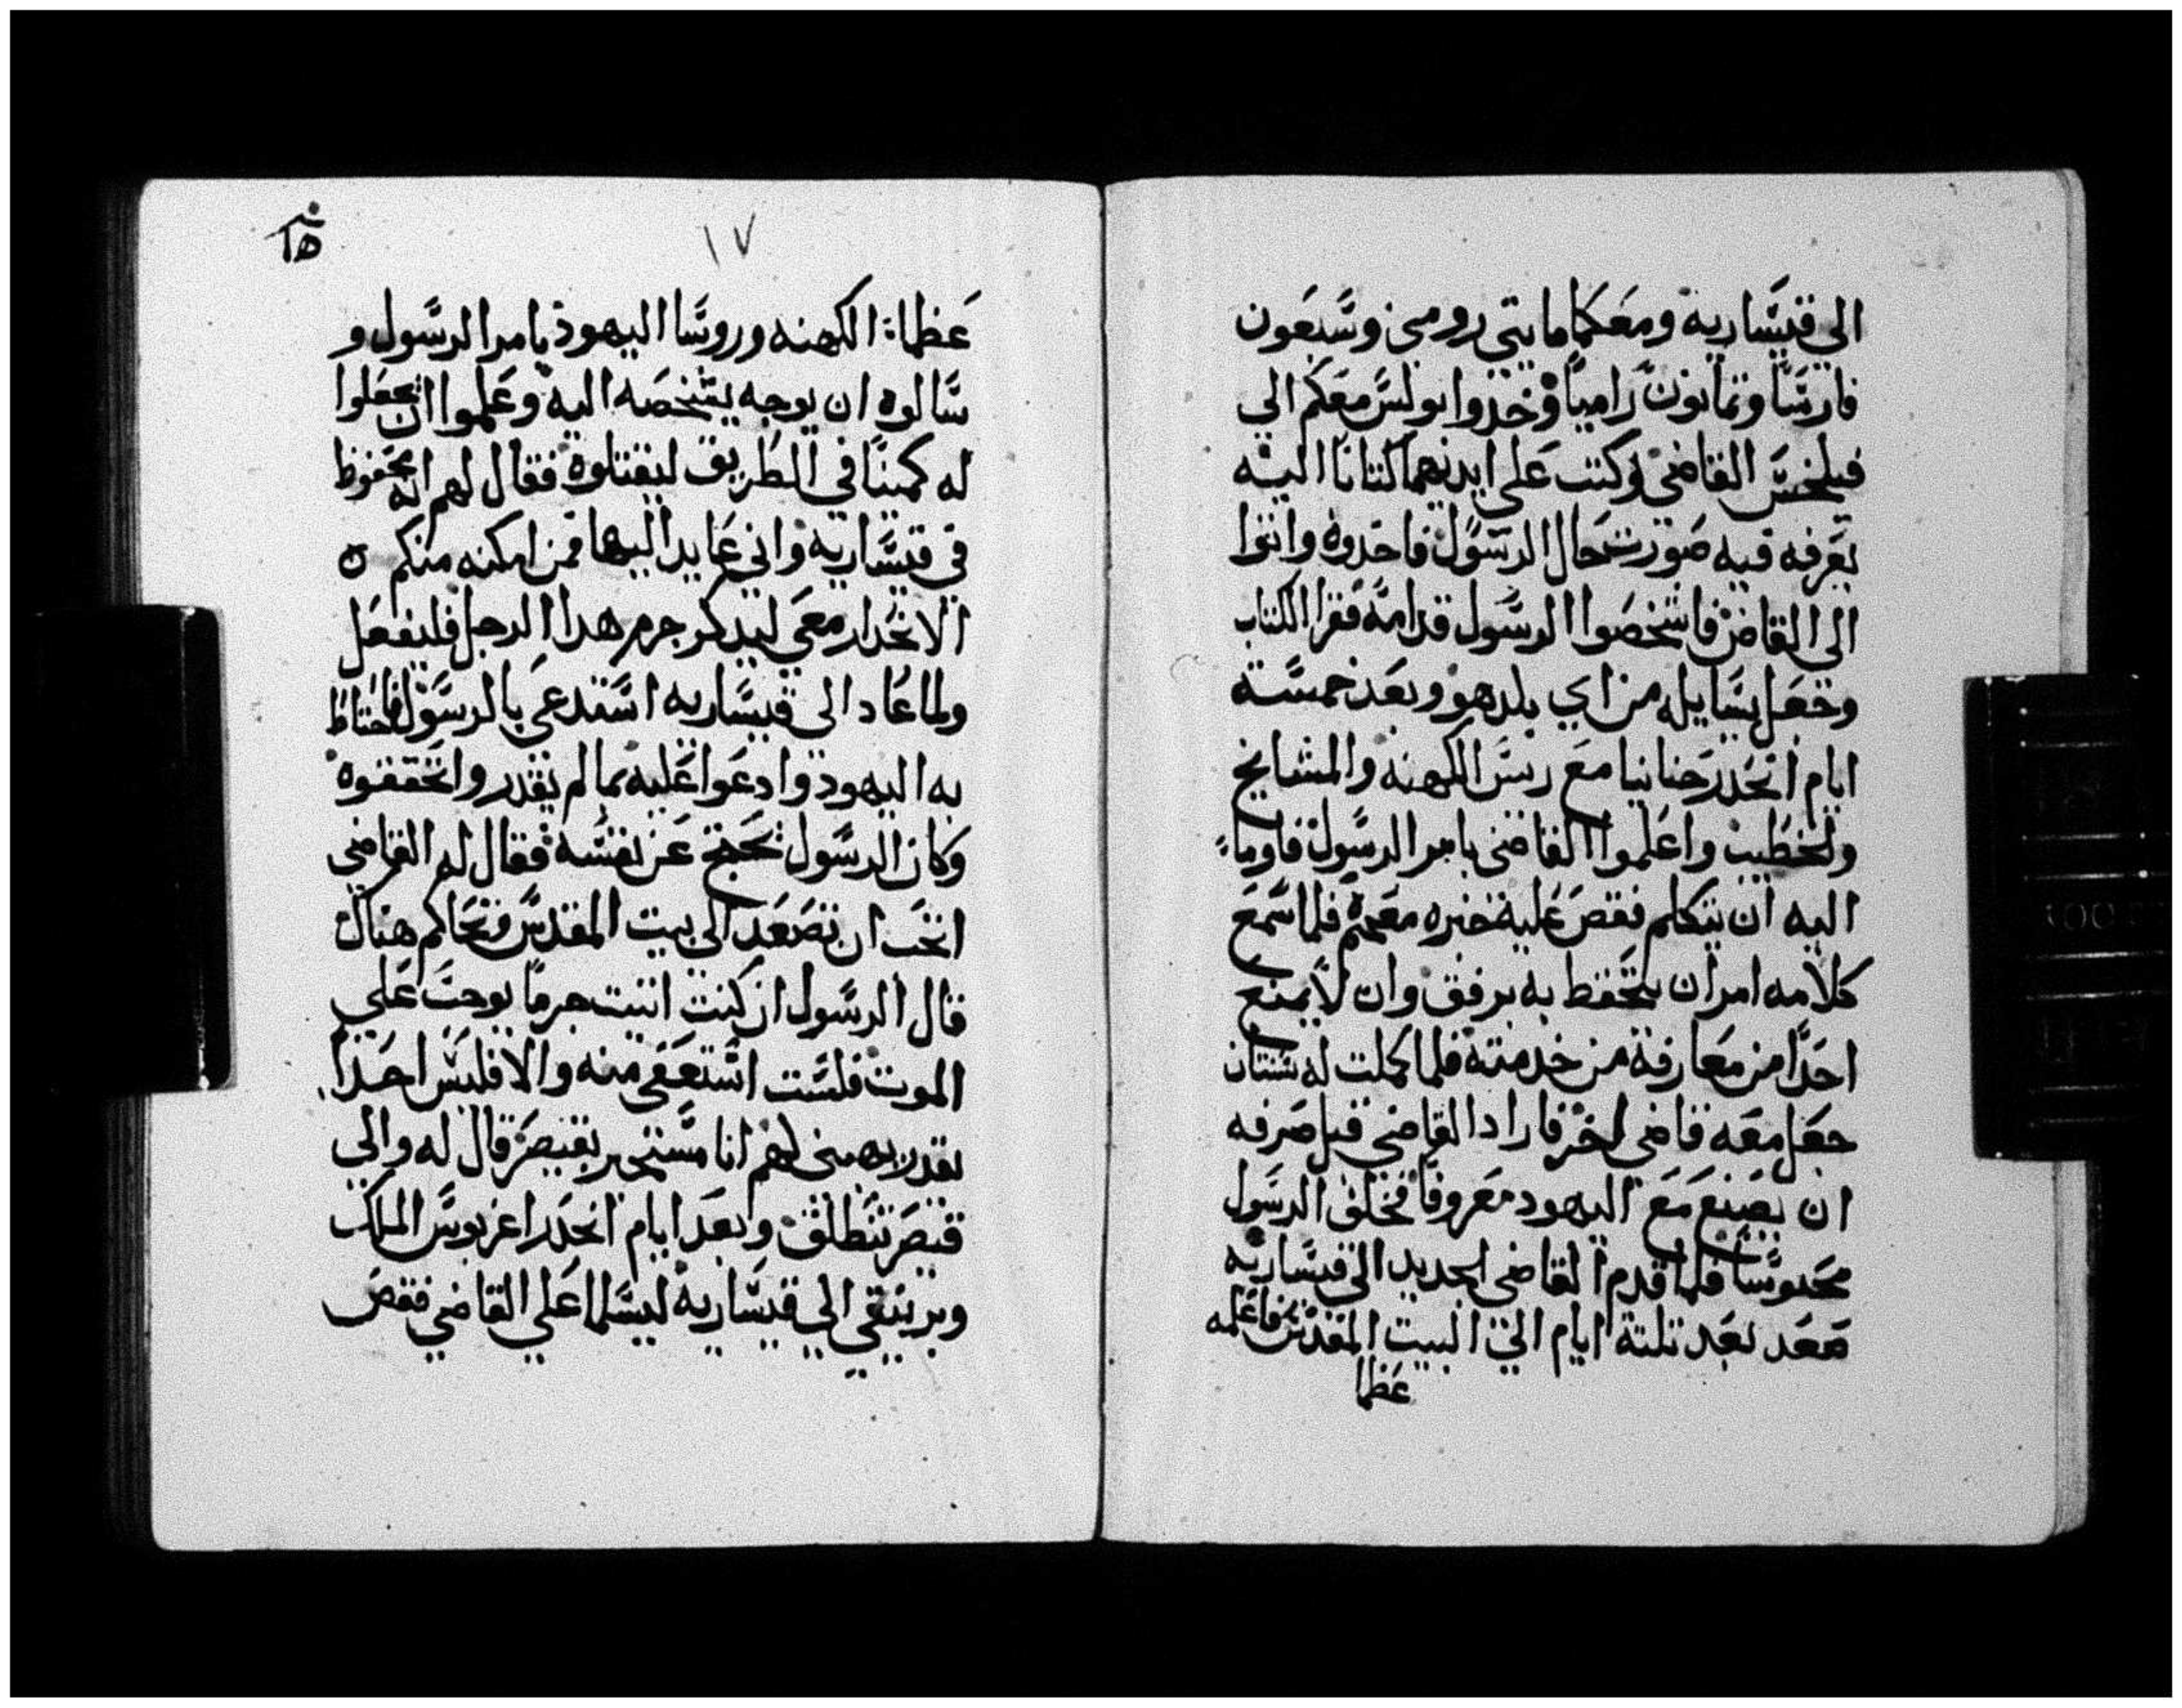 الي قيسارية ومعكما مايتي رومي وسبعون
فارسا وتمانون راميا وخدوا بولس معكم الي
فيلخس القاضي وكتب علي ايديهما كتابا اليه
يعرفه فيه صورت حال الرسول فاخدوه واتوا
الي القاضي فاشخصوا الرسول قدامه فقرا الكتاب
وجعل يسايله من اي بلد هو وبعد خمسة
ايام انحدر حنانيا مع ريس الكهنه والمشايخ
والخطيب واعلموا القاضي بامر الرسول فاوماء
اليه ان يتكلم فقص عليه خبره معهم فلما سمع
كلامه امر ان يتحفظ به برفق وان لا يمنع
احدا من معارفه من خدمته فلما كملت له سنتان
جعل معه قاضي اخر فاراد القاضي قبل صرفه
ان يصنع مع اليهود معروفا فخلف الرسول
محبوسا فلما قدم القاضي الجديد الي قيساريه
صعد بعد تلتة ايام الي البيت المقدس فاعلمه
عظما
١٧
عظماء الكهنه وروسا اليهود بامر الرسول و
سالوه ان يوجه يشخصه اليه وعلموا ان يجعلوا
له كمينا في الطريق ليقتلوه فقال لهم انه محفوظ
في قيساريه واني عايد اليها فمن امكنه منكم
الانحدار معي ليدكر جرم هدا الرجل فليفعل
ولما عاد الي قيساريه استدعي بالرسول فاحتاط
به اليهود وادعوا عليه بما لم يقدروا تحققوه
وكان الرسول يحتج عن نفسه فقال له القاضي
اتحب ان تصعد الي بيت المقدس فتحاكم هناك
قال الرسول ان كنت اتيت جرما يوجب علي
الموت فلست استعفي منه والا فليس احدا
يقدر يهبني لهم انا مستجير بقيصر قال له والي
قيصر تنطلق وبعد ايام انحدر اغربوس الملك
وبرينقي الي قيساريه ليسلما علي القاضي فقص